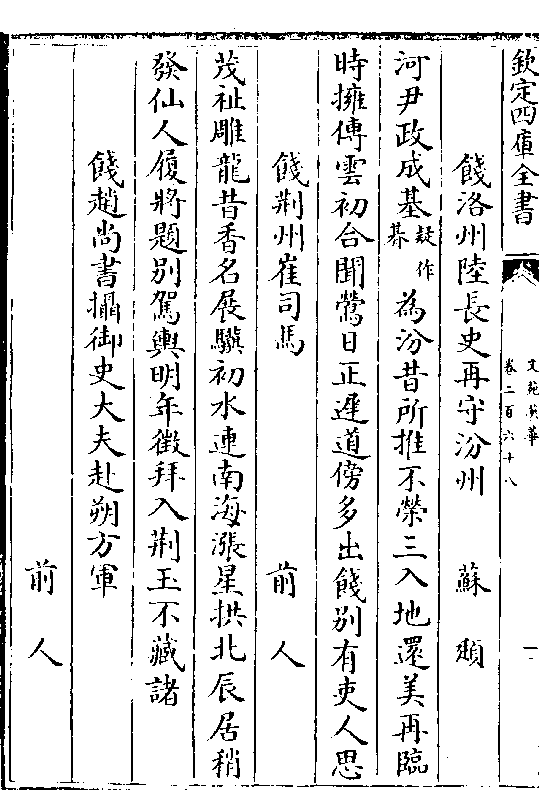 欽定四庫全書
文苑英華
卷二百六十八
一
餞洛州陸長史再守汾州 蘇頲
河尹政成基疑作朞為汾昔所推不榮三入地還美再臨
時擁傳雲初合聞鶯日正遲道傍多出餞别有吏人思
餞荆州崔司馬 前人
茂祉雕龍昔香名展驥初水連南海漲星拱北辰居稍
發仙人履將題别駕輿明年徵拜入荆玉不藏諸
餞趙尚書攝御史大夫赴朔方軍
前人